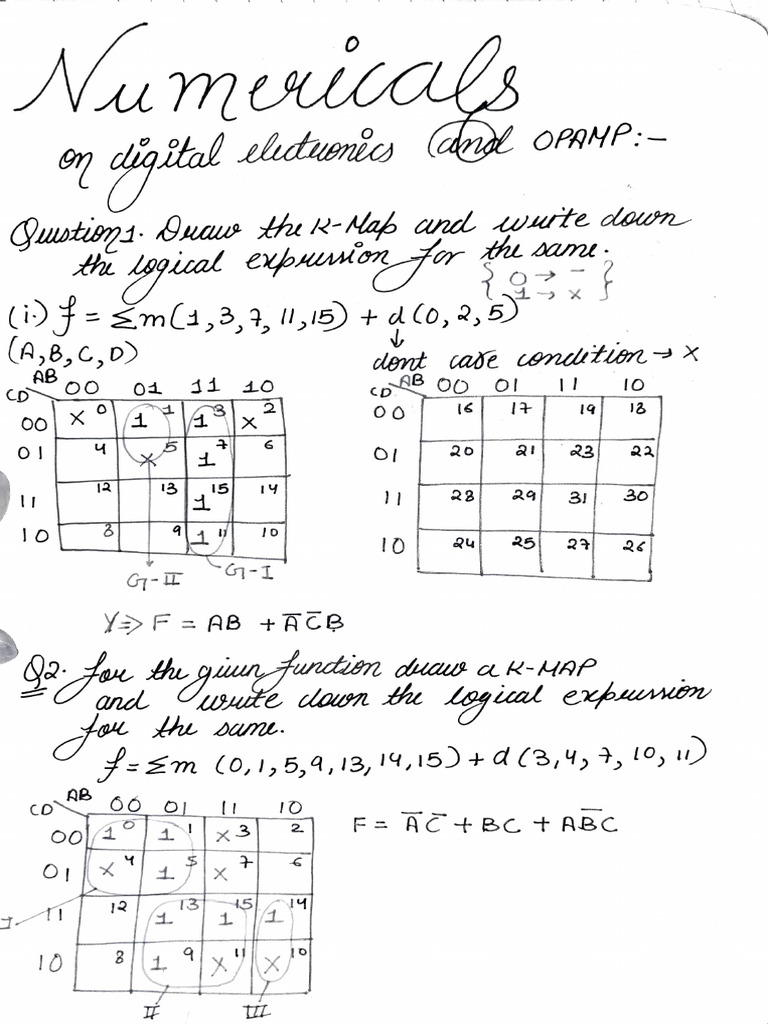 Numericals
on digital electronics and OPAMP:-
Question1. Draw the K-Map and write down
the logical expression for the same.
{ 0 → - }
{ 1 → x }
(i.) f = Σm(1,3,7,11,15) + d(0,2,5)
(A,B,C,D)
↓
dont care condition → x
CD AB 00 01 11 10
00 x 0 1 1 1 3 x 2
01 4 x 5 1 7 6
11 12 13 1 15 14
10 8 9 1 11 10
G-II G-I
CD AB 00 01 11 10
00 16 17 19 18
01 20 21 23 22
11 28 29 31 30
10 24 25 27 26
Y⇒ F = AB + A̅C̅B
Q2. for the given function draw a K-MAP
and write down the logical expression
for the same.
f = Σm (0,1,5,9,13,14,15) + d(3,4,7,10,11)
CD AB 00 01 11 10
00 1 0 1 1 x 3 2
01 x 4 1 5 x 7 6
I 11 12 1 13 1 15 1 14
10 8 1 9 x 11 x 10
II III
F = A̅C̅ + BC + AB̅C